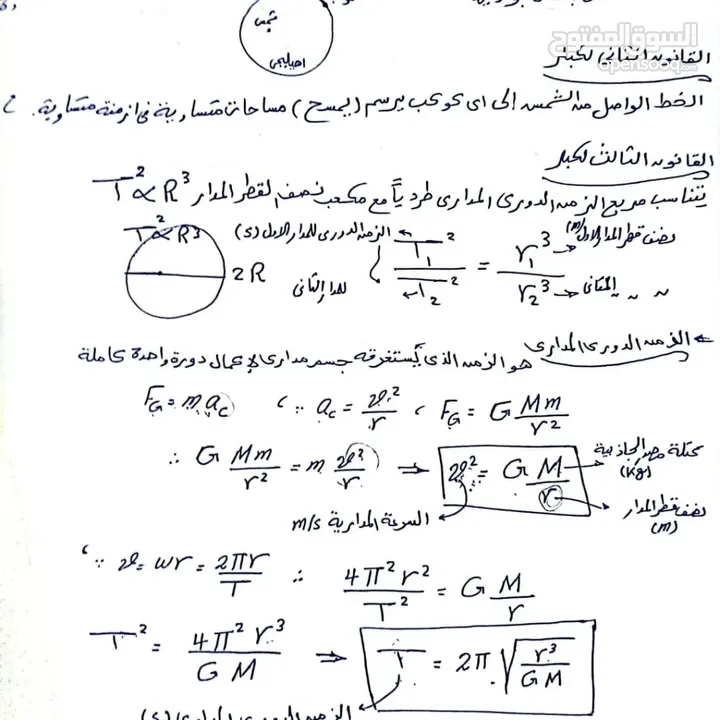 شمس
اهليلجي
السوق المفتوح
opensooq.com
القانون الثاني لكبلر
الخط الواصل من الشمس إلى اى كوكب يرسم (يمسح) مساحات متساوية فى ازمنة متساوية.
القانون الثالث لكبلر
يتناسب مربع الزمن الدورى المدارى طردياً مع مكعب نصف لقطر المدار T² ∝ R³
T² ∝ R³
2R
الزمن الدورى للمدار الاول (s) ← T₁² / T₂² = r₁³ / r₂³ → نصف قطر المدار الاول (m)
للمدار الثانى
" " الثانى
← الزمن الدورى المدارى
هو الزمن الذى يستغرقه جسم مدارى لإكمال دورة واحدة كاملة
F_G = m a_c ، ∵ a_c = v²/r ، F_G = G Mm/r²
∴ G Mm/r² = m v²/r ⇒ v² = G M/r
كتلة مصدر الجاذبية (kg)
نصف قطر المدار (m)
السرعة المدارية m/s
∵ v = ωr = 2πr/T ∴ 4π² r²/T² = G M/r
T² = 4π² r³/GM ⇒ T = 2π √(r³/GM)
الزمن الدورى المدارى (s)